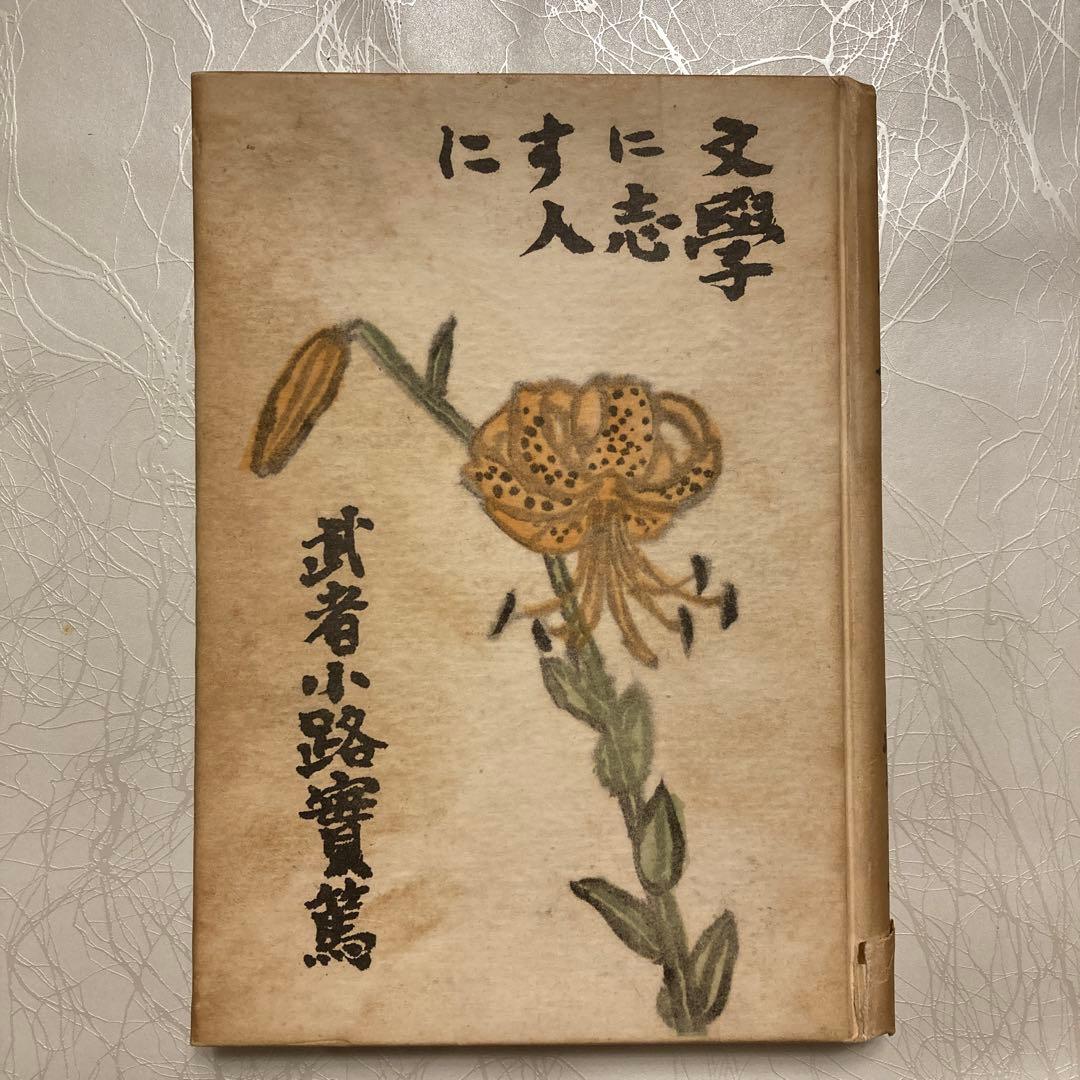 文學
に志
す人
に
武者小路實篤